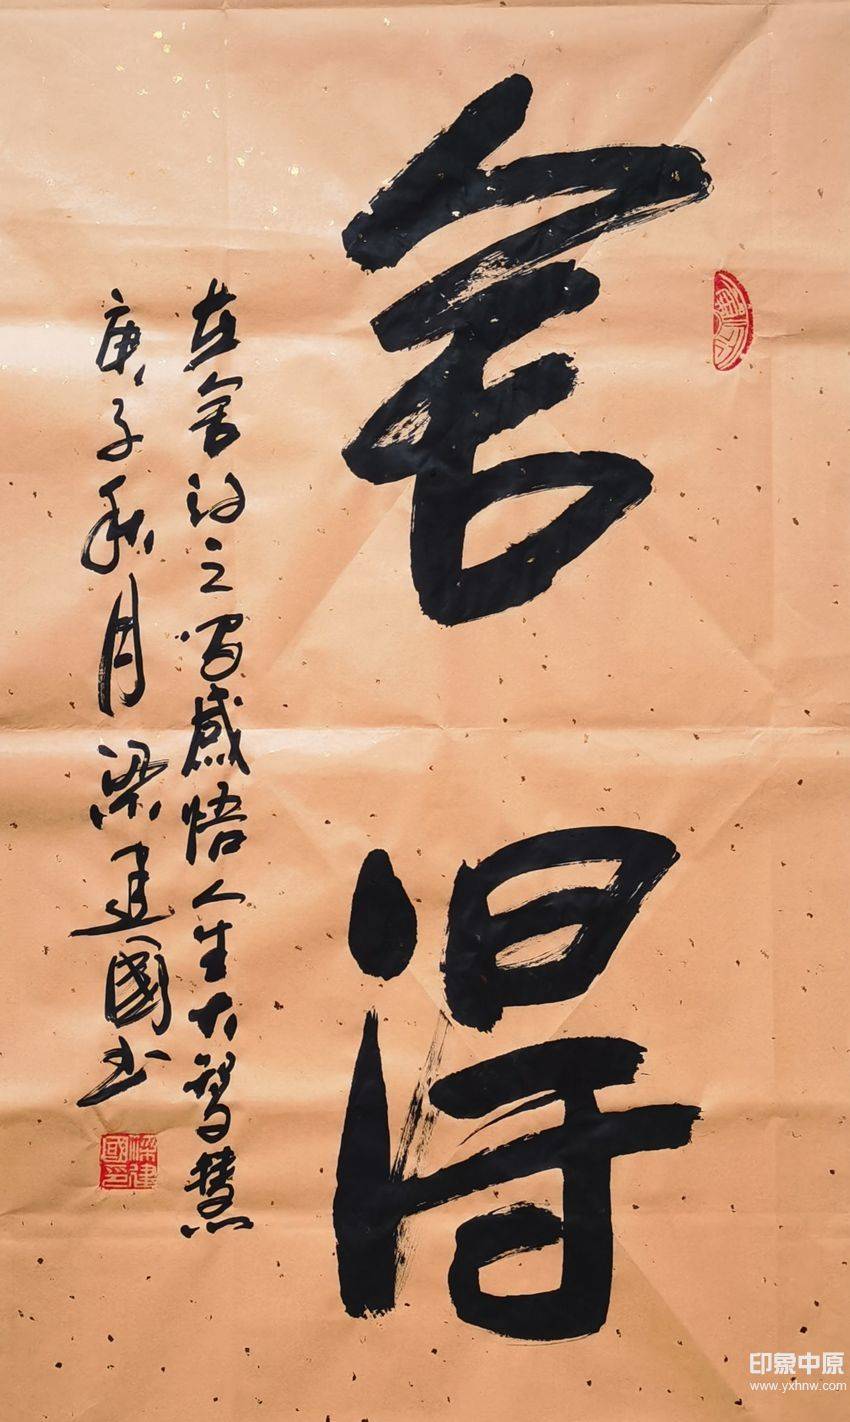 舍得
在舍得之间感悟人生大智慧
庚子秋月梁建國书
梁建國印
印象中原
www.yxhnw.com